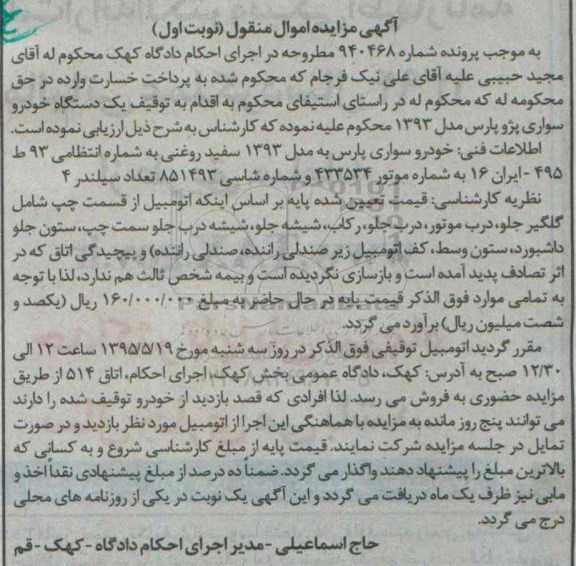 آگهی مزایده اموال منقول (نوبت اول)
به موجب پرونده شماره ۹۴۰۴۶۸ مطروحه در اجرای احکام دادگاه کهک محکوم له آقای
مجید حبیبی علیه آقای علی نیک فرجام که محکوم شده به پرداخت خسارت وارده در حق
محکومه له که محکوم له در راستای استیفای محکوم به اقدام به توقیف یک دستگاه خودرو
سواری پژو پارس مدل ۱۳۹۳ محکوم علیه نموده که کارشناس به شرح ذیل ارزیابی نموده است.
اطلاعات فنی: خودرو سواری پارس به مدل ۱۳۹۳ سفید روغنی به شماره انتظامی ۹۳ ط
۴۹۵ - ایران ۱۶ به شماره موتور ۴۳۳۵۳۴ و شماره شاسی ۸۵۱۴۹۳ تعداد سیلندر ۴
نظریه کارشناسی: قیمت تعیین شده پایه بر اساس اینکه اتومبیل از قسمت چپ شامل
گلگیر جلو، درب موتور، درب جلو، رکاب، شیشه جلو، شیشه درب جلو سمت چپ، ستون جلو
داشبورد، ستون وسط، کف اتومبیل زیر صندلی راننده، صندلی راننده) و پیچیدگی اتاق که در
اثر تصادف پدید آمده است و بازسازی نگردیده است و بیمه شخص ثالث هم ندارد، لذا با توجه
به تمامی موارد فوق الذکر قیمت پایه در حال حاضر به مبلغ ۱۶۰/۰۰۰/۰۰۰ ریال (یکصد و
شصت میلیون ریال) برآورد می گردد.
مقرر گردید اتومبیل توقیفی فوق الذکر در روز سه شنبه مورخ ۱۳۹۵/۵/۱۹ ساعت ۱۲ الی
۱۲/۳۰ صبح به آدرس: کهک، دادگاه عمومی بخش کهک، اجرای احکام، اتاق ۵۱۴ از طریق
مزایده حضوری به فروش می رسد. لذا افرادی که قصد بازدید از خودرو توقیف شده را دارند
می توانند پنج روز مانده به مزایده با هماهنگی این اجرا از اتومبیل مورد نظر بازدید و در صورت
تمایل در جلسه مزایده شرکت نمایند. قیمت پایه از مبلغ کارشناسی شروع و به کسانی که
بالاترین مبلغ را پیشنهاد دهند واگذار می گردد. ضمناً ده درصد از مبلغ پیشنهادی نقداً اخذ و
مابی نیز ظرف یک ماه دریافت می گردد و این آگهی یک نوبت در یکی از روزنامه های محلی
درج می گردد.
حاج اسماعیلی - مدیر اجرای احکام دادگاه - کهک - قم